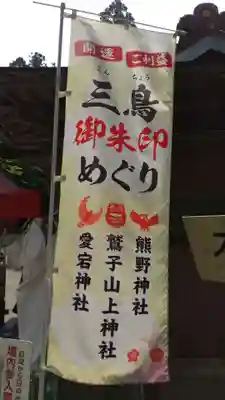 開運 ご利益
さん ちょう
三鳥
御朱印
めぐり
熊野神社
鷲子山上神社
愛宕神社
境内参入